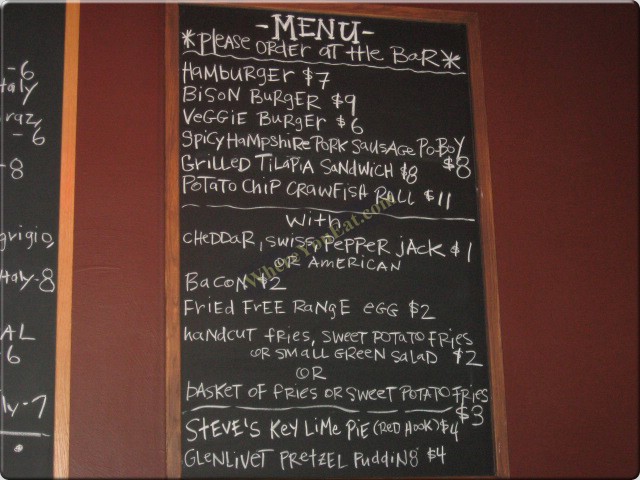 -6
aly
razy
-6
-8
grigio,
aly-8
AL
6
ly-7
-MENU-
*PLEASE ORDER AT THE BAR*
HAMBURGER $7
BISON BURGER $9
VEGGIE BURGER $6
SPICY HAMPSHIRE PORK SAUSAGE PO-BOY
$8
GRILLED TILAPIA SANDWICH $8
POTATO CHIP CRAWFISH RALL $11
WITH
CHEDDAR, SWISS, PEPPER JACK $1
OR AMERICAN
BACON $2
FRIED FREE RANGE EGG $2
HANDCUT FRIES, SWEET POTATO FRIES
OR SMALL GREEN SALAD $2
OR
BASKET OF FRIES OR SWEET POTATO FRIES
$3
STEVE'S KEY LIME PIE (RED HOOK) $4
GLENLIVET PRETZEL PUDDING $4
WhereYouEat.com